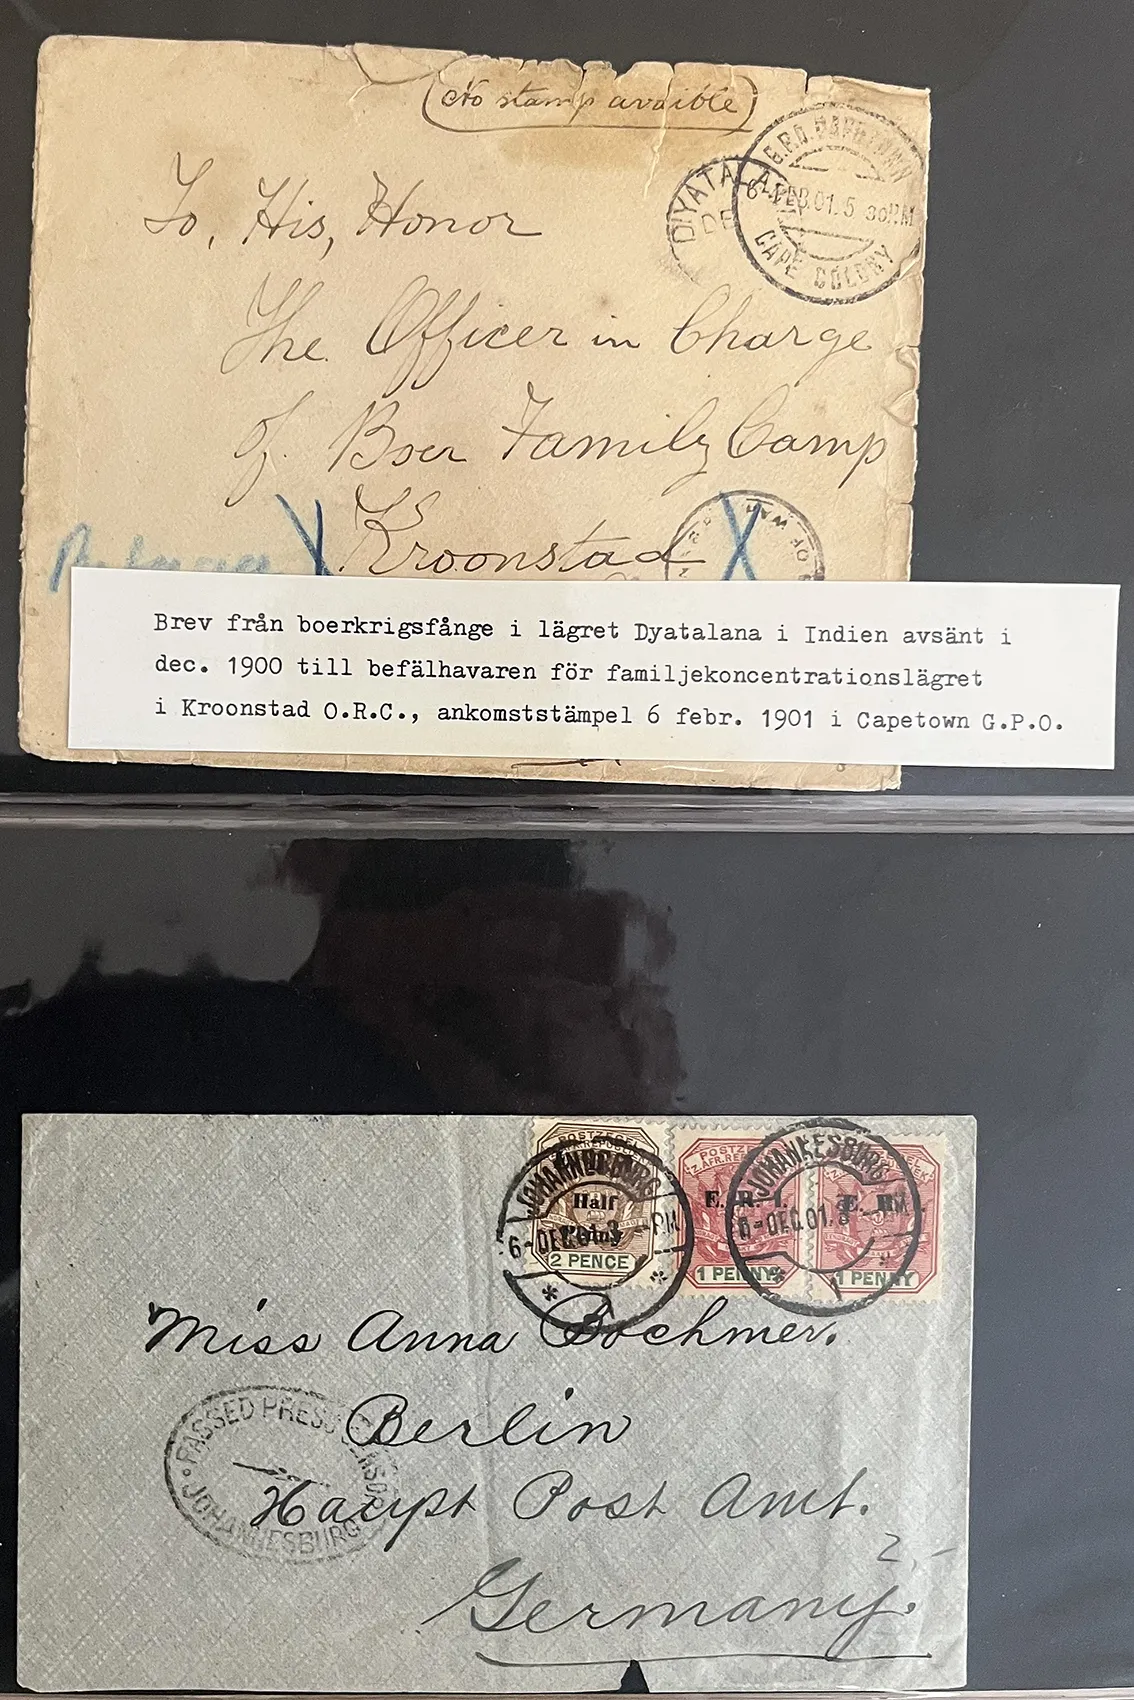 (No stamp avaible)
G.P.O. CAPETOWN
6 FEB.01.5 30PM
CAPE COLONY
DIYATAL
DE
To, His, Honor
The Officer in Charge
of Boer Family Camp
Kroonstad
OF WAR
Brev från boerkrigsfånge i lägret Dyatalana i Indien avsänt i
dec. 1900 till befälhavaren för familjekoncentrationslägret
i Kroonstad O.R.C., ankomststämpel 6 febr. 1901 i Capetown G.P.O.
POSTZEGEL
Half
Penny
2 PENCE
JOHANNESBURG
6-DEC.01.3-PM.
POSTZE
Z. AFR. RE
E. R. I.
1 PENNY
E. R.
1 PENNY
JOHANNESBURG
6-DEC.01.3
Miss Anna Bochmer.
Berlin
Haupt Post Amt.
Germany.
PASSED PRESS CENSOR
JOHANNESBURG
2,-